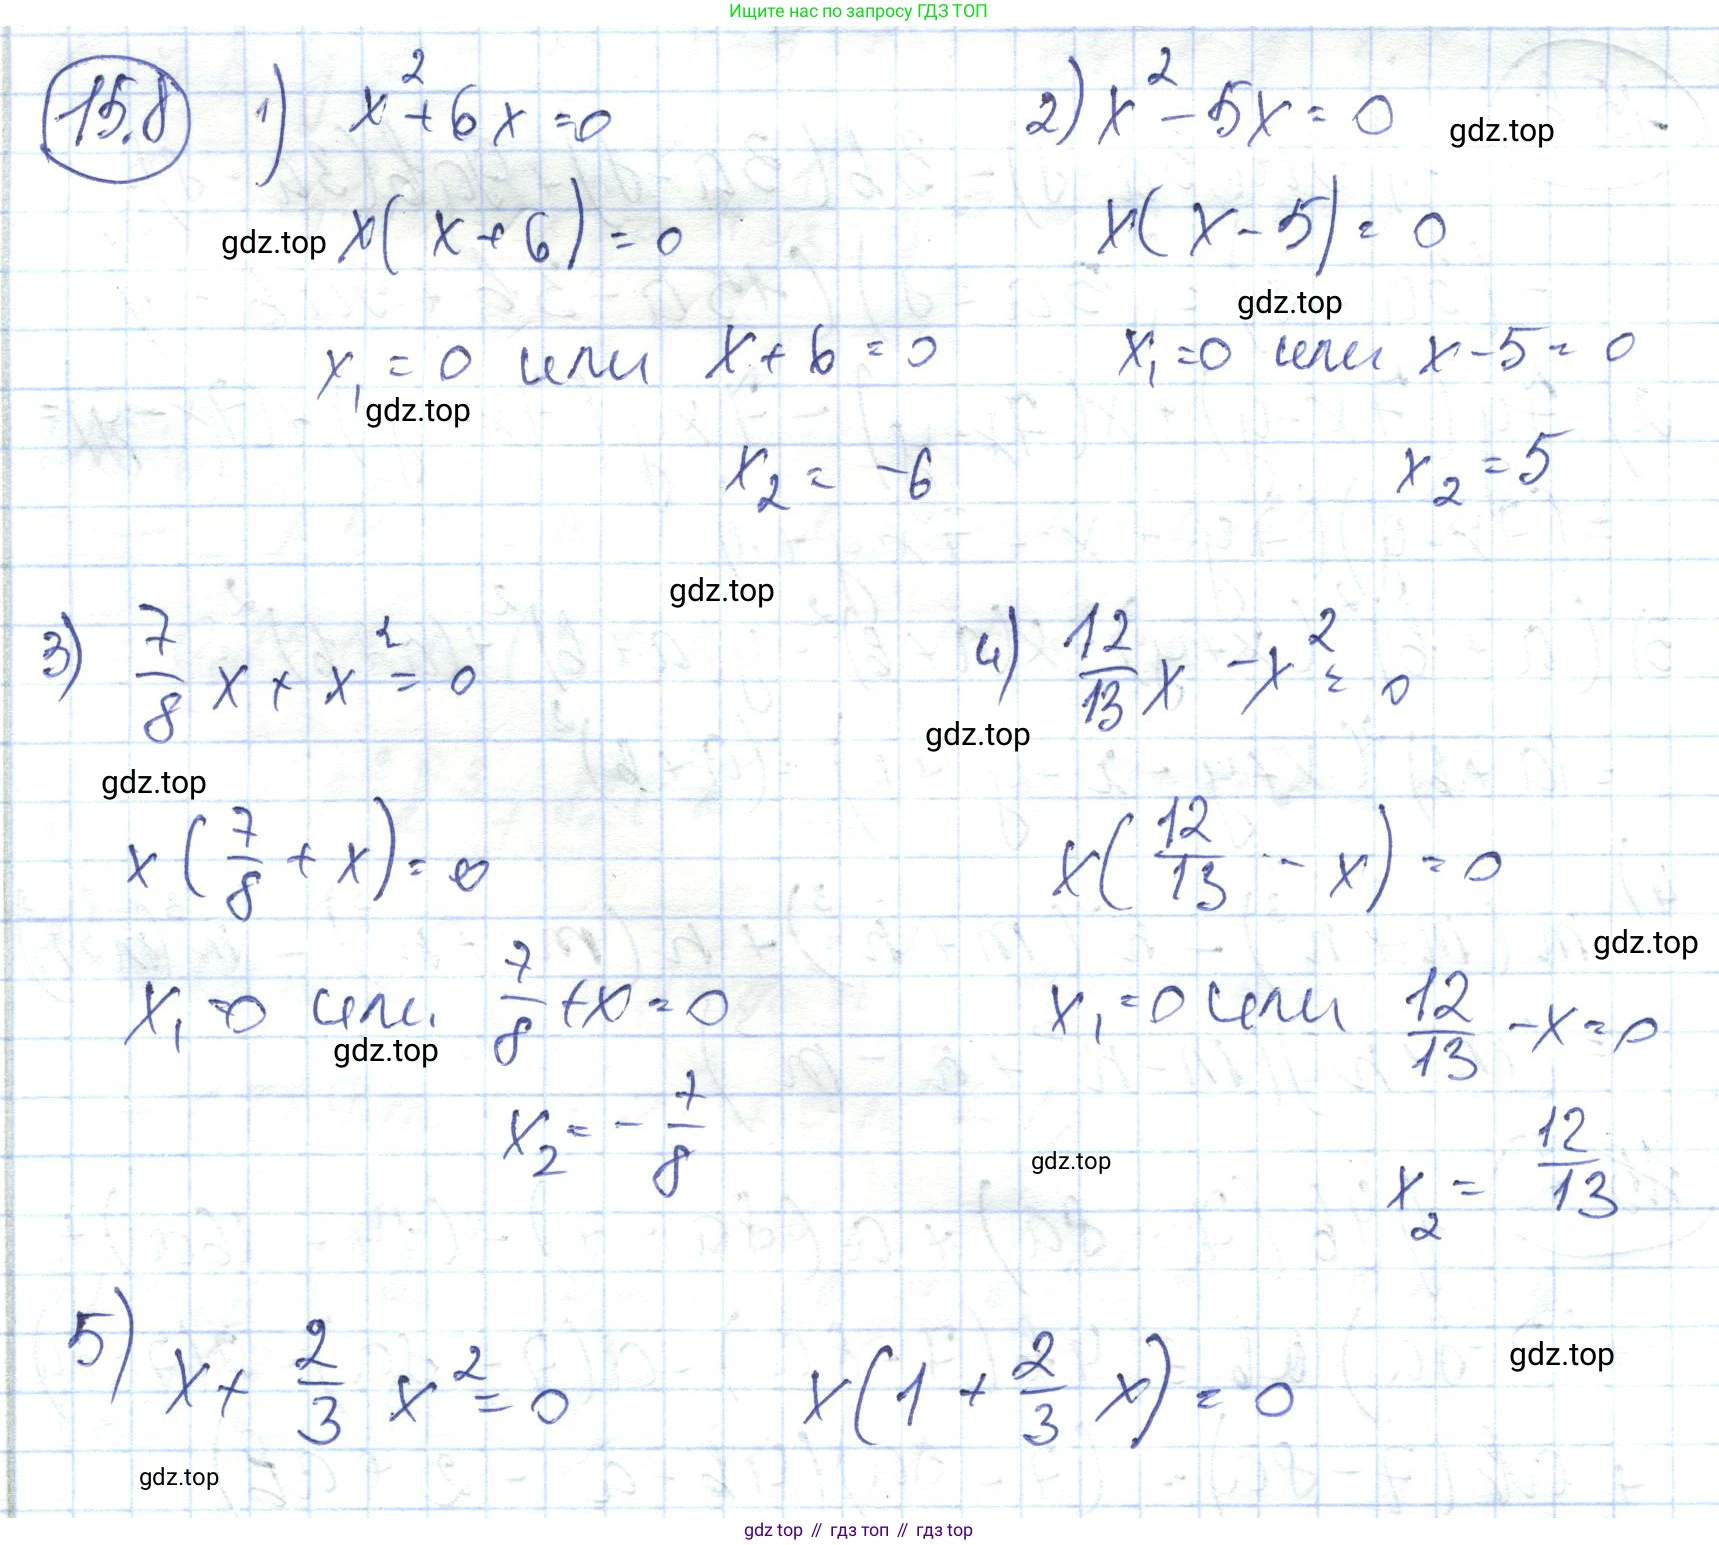 Ищите нас по запросу ГДЗ ТОП
15.8 1) x² + 6x = 0
2) x² - 5x = 0
gdz.top
x(x + 6) = 0
x(x - 5) = 0
gdz.top
gdz.top
x₁ = 0 или x + 6 = 0
x₁ = 0 или x - 5 = 0
gdz.top
x₂ = -6
x₂ = 5
gdz.top
3) 7/8 x + x² = 0
4) 12/13 x - x² = 0
gdz.top
gdz.top
x(7/8 + x) = 0
x(12/13 - x) = 0
gdz.top
x₁ = 0 или 7/8 + x = 0
x₁ = 0 или 12/13 - x = 0
gdz.top
x₂ = - 7/8
gdz.top
x₂ = 12/13
5) x + 2/3 x² = 0
x(1 + 2/3 x) = 0
gdz.top
gdz.top
gdz top // гдз топ // гдз top